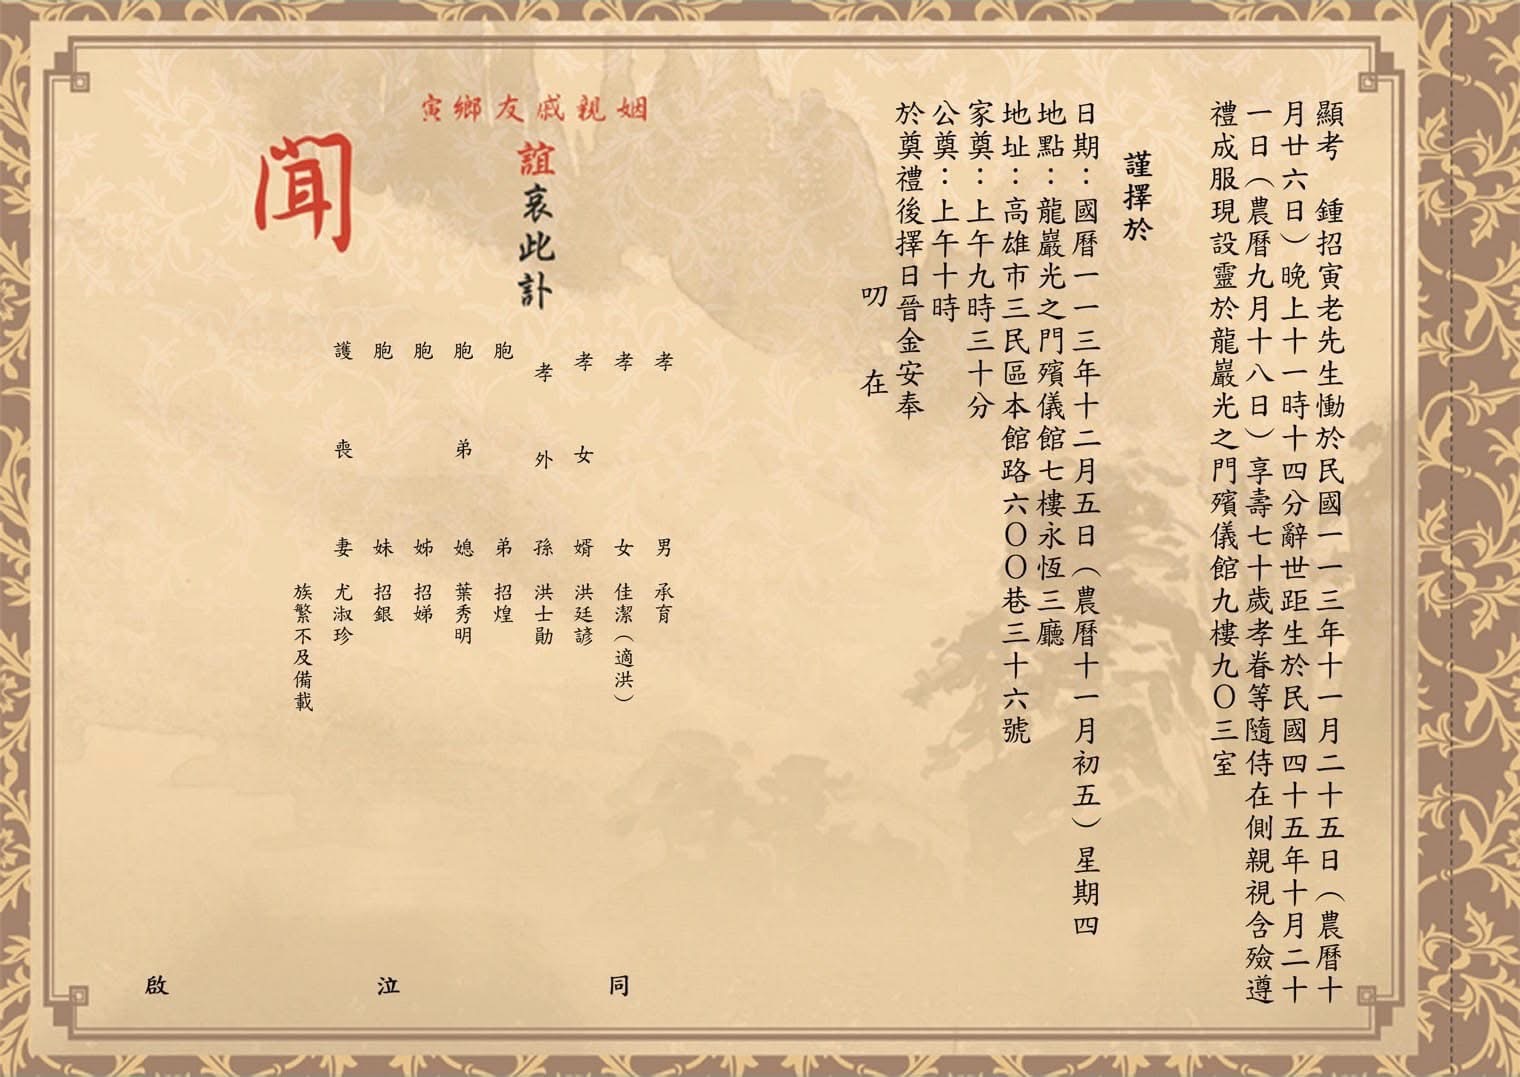 顯考　鍾招寅老先生慟於民國一一三年十一月二十五日（農曆十
月廿六日）晚上十一時十四分辭世距生於民國四十五年十月二十
一日（農曆九月十八日）享壽七十歲孝眷等隨侍在側親視含殮遵
禮成服現設靈於龍巖光之門殯儀館九樓九〇三室
謹擇於
日期：國曆一一三年十二月五日（農曆十一月初五）星期四
地點：龍巖光之門殯儀館七樓永恆三廳
地址：高雄市三民區本館路六〇〇巷三十六號
家奠：上午九時三十分
公奠：上午十時
於奠禮後擇日晉金安奉
叨在
姻親戚友鄉寅
誼哀此訃
聞
孝男 承育
孝女 佳潔（適洪）
孝女婿 洪廷諺
孝外孫 洪士勛
胞弟 招煌
胞弟媳 葉秀明
胞姊 招娣
胞妹 招銀
護喪妻 尤淑珍
族繁不及備載
同泣啟